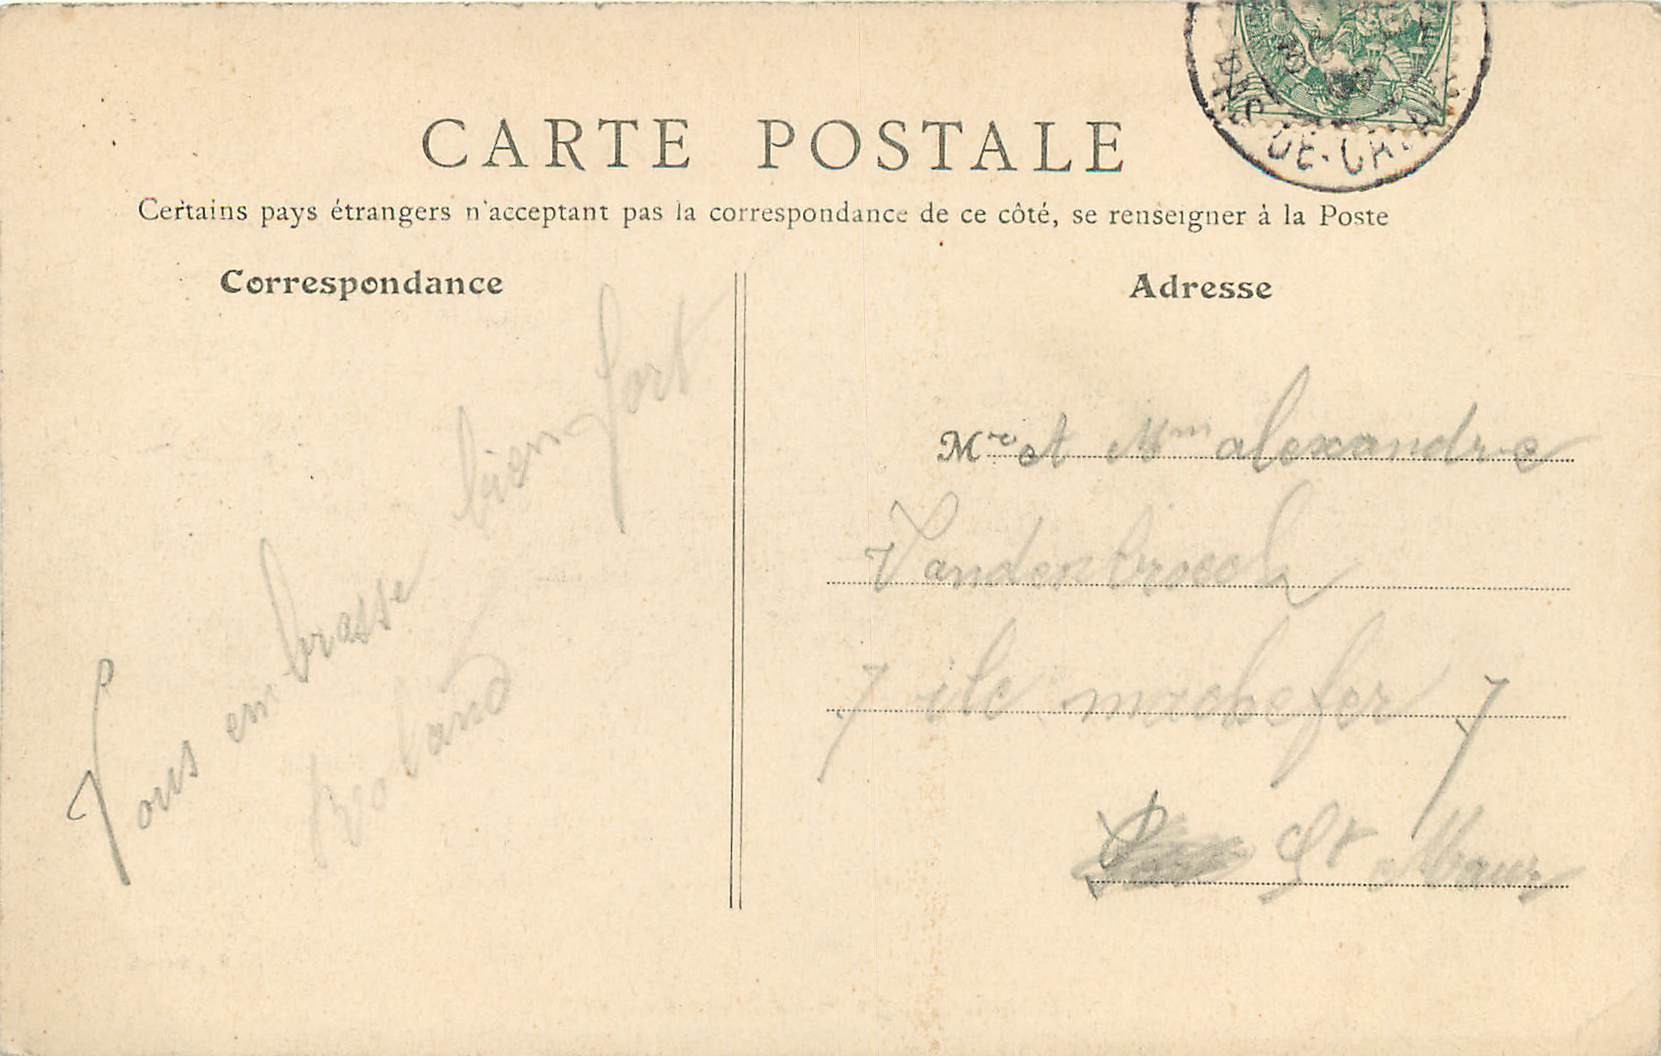 CARTE POSTALE
Certains pays étrangers n'acceptant pas la correspondance de ce côté, se renseigner à la Poste
Correspondance
Adresse
Vous embrasse bien fort
Roland
Mr et Mm alexandre
Vandenbroeck
7 ile machefer 7
St Maur
DE